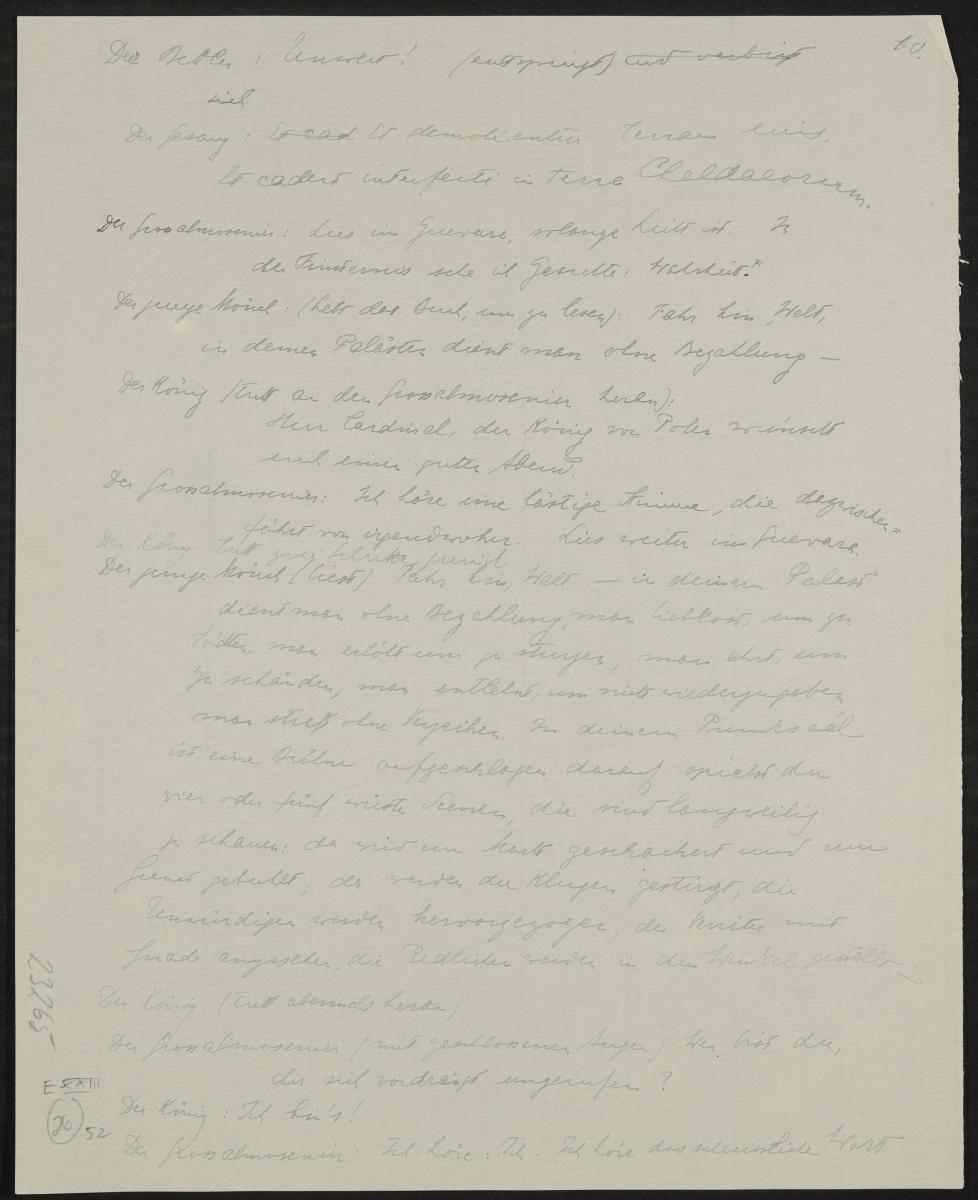 10.
Der Bettler : Unwert! (entspringt) und verbirgt
sich
Der Gesang : Et cad Et demolientur terram eius.
Et cadent interfecti in terra Chaldaeorum.
Der Grossalmosenier : Lies im Guevara, solange Licht ist. In
der Finsternis sehe ich Gesichte : Wahrheit!
Der junge Mönch : (hebt das Buch, um zu lesen) : Fahr hin, Welt,
in deinen Palästen dient man ohne Bezahlung —
Der König (tritt an den Grossalmosenier heran) :
Herr Cardinal, der König von Polen wünscht
euch einen guten Abend.
Der Grossalmosenier : Ich höre eine lästige Stimme, die dazwischen=
fährt von irgendwoher. Lies weiter im Guevara.
Der König tritt zwei Schritte zurück
Der junge Mönch (liest) Fahr hin, Welt — in deinem Palast
dient man ohne Bezahlung, man liebkost, um zu
tödten, man erhöht um zu stürzen, man ehrt, um
zu schänden, man entlehnt, um nicht wiederzugeben,
man straft ohne Verzeihen. In deinem Prunksaal
ist eine Bühne aufgeschlagen, darauf spielst du
vier oder fünf wüste Scenen, die sind langweilig
zu schauen : da wird um Macht geschachert und um
Gunst gebuhlt, da werden die Klugen gestürzt, die
Unwürdigen werden hervorgezogen, der Verräter mit
Gnade angesehen, die Redlichen werden in den Winkel gestellt —
Der König (tritt abermals heran)
Der Grossalmosenier (mit geschlossenen Augen) Wer bist du,
der sich vordrängt ungerufen ?
Der König : Ich bin's!
Der Grossalmosenier : Ich höre : Ich. Ich höre das scheussliche Wort
23265
E XXIII
20
52